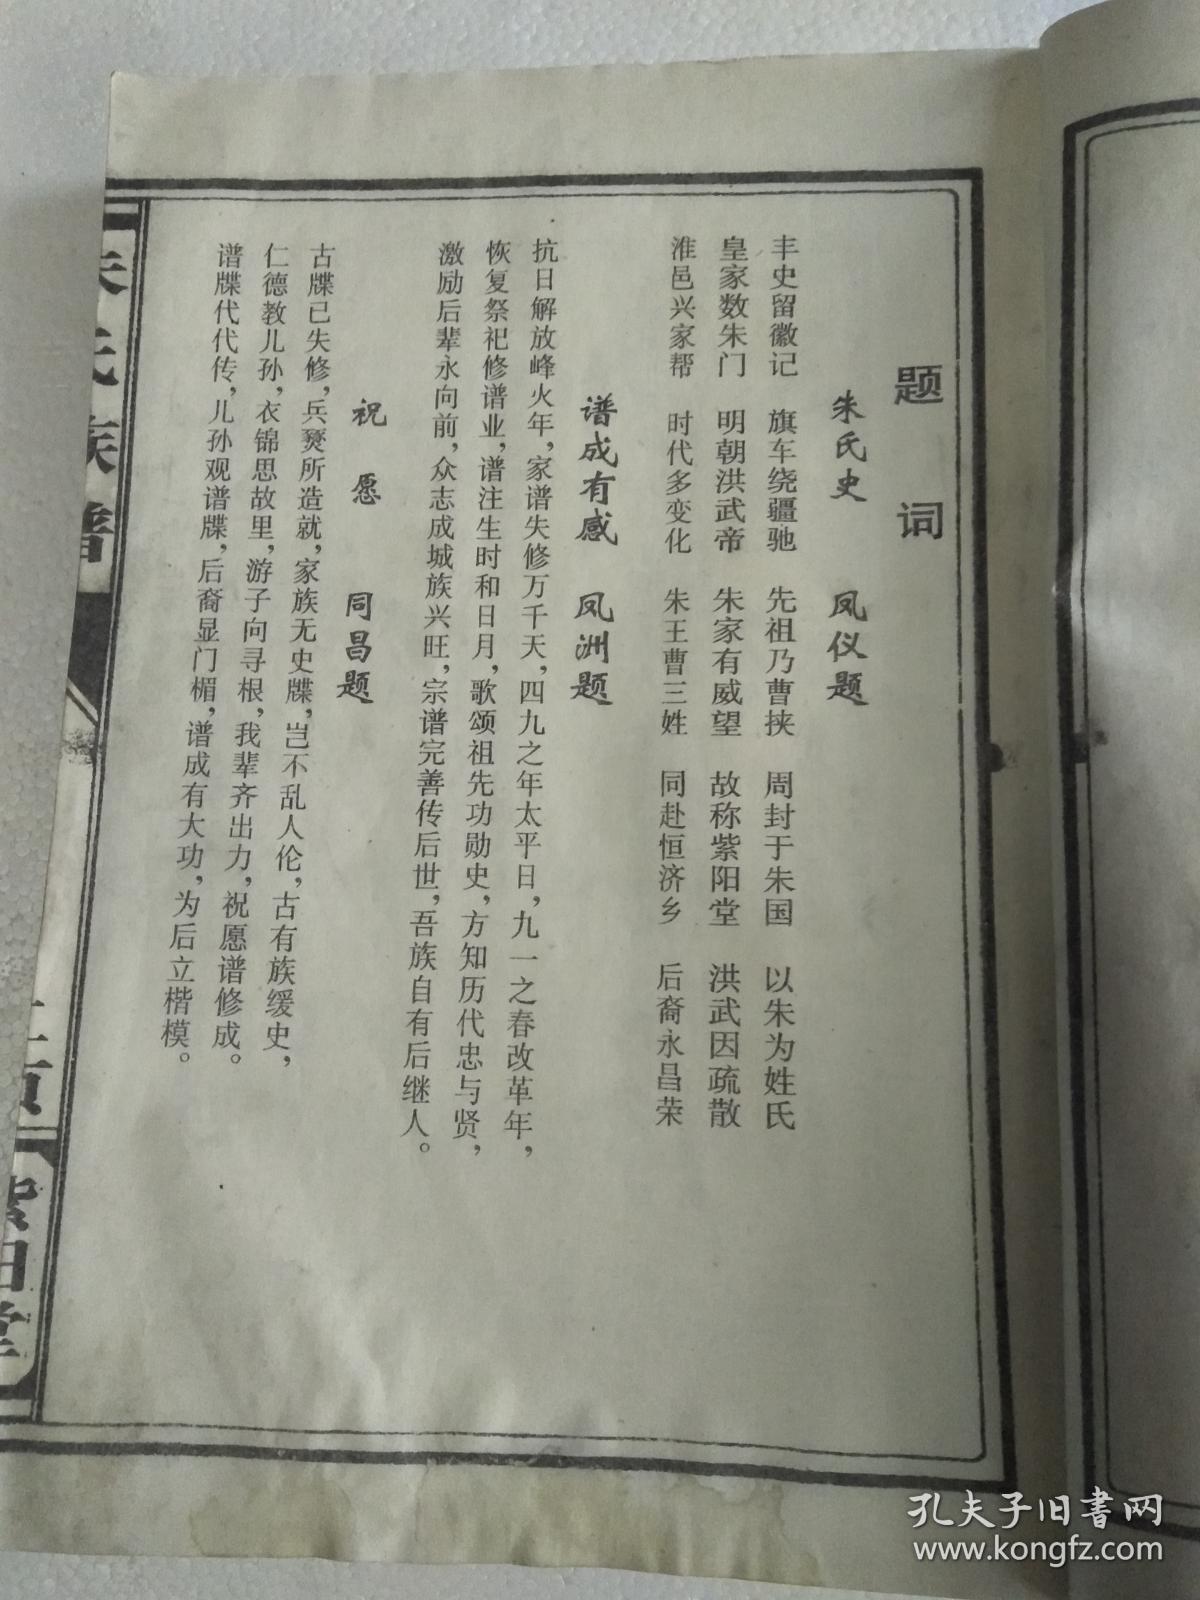 题词
朱氏史 凤仪题
丰史留徽记 旗车绕疆驰 先祖乃曹挟 周封于朱国 以朱为姓氏
皇家数朱门 明朝洪武帝 朱家有威望 故称紫阳堂 洪武因疏散
淮邑兴家帮 时代多变化 朱王曹三姓 同赴恒济乡 后裔永昌荣
谱成有感 凤洲题
抗日解放峰火年，家谱失修万千天，四九之年太平日，九一之春改革年，
恢复祭祀修谱业，谱注生时和日月，歌颂祖先功勋史，方知历代忠与贤，
激励后辈永向前，众志成城族兴旺，宗谱完善传后世，吾族自有后继人。
祝愿 同昌题
古牒已失修，兵燹所造就，家族无史牒，岂不乱人伦，古有族缓史，
仁德教儿孙，衣锦思故里，游子向寻根，我辈齐出力，祝愿谱修成。
谱牒代代传，儿孙观谱牒，后裔显门楣，谱成有大功，为后立楷模。
朱氏族谱
紫阳堂
孔夫子旧书网
www.kongfz.com